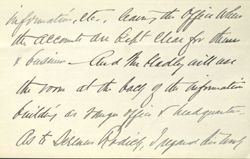 information, etc., leaving the Office where
the accounts are kept clear for them
& business — And Mr Hadley will use
the room at the back of the information
building as range office & headquarters.
As to Dr I regard his